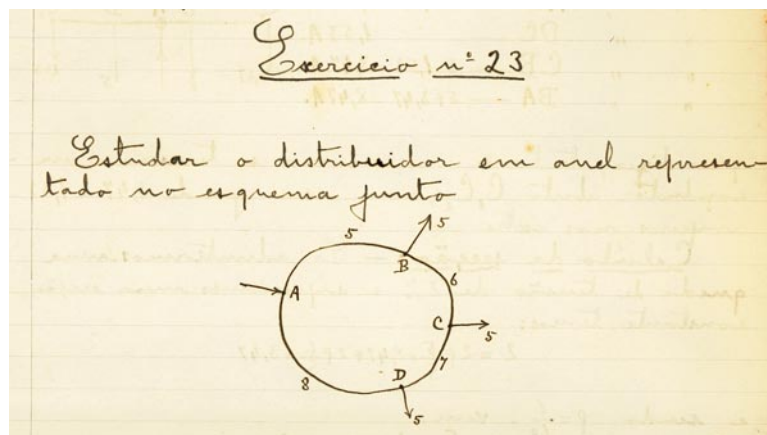 Exercicio nº 23
Estudar o distribuidor em anel represen-
tado no esquema junto
5
5
B
6
A
C
5
7
D
8
5